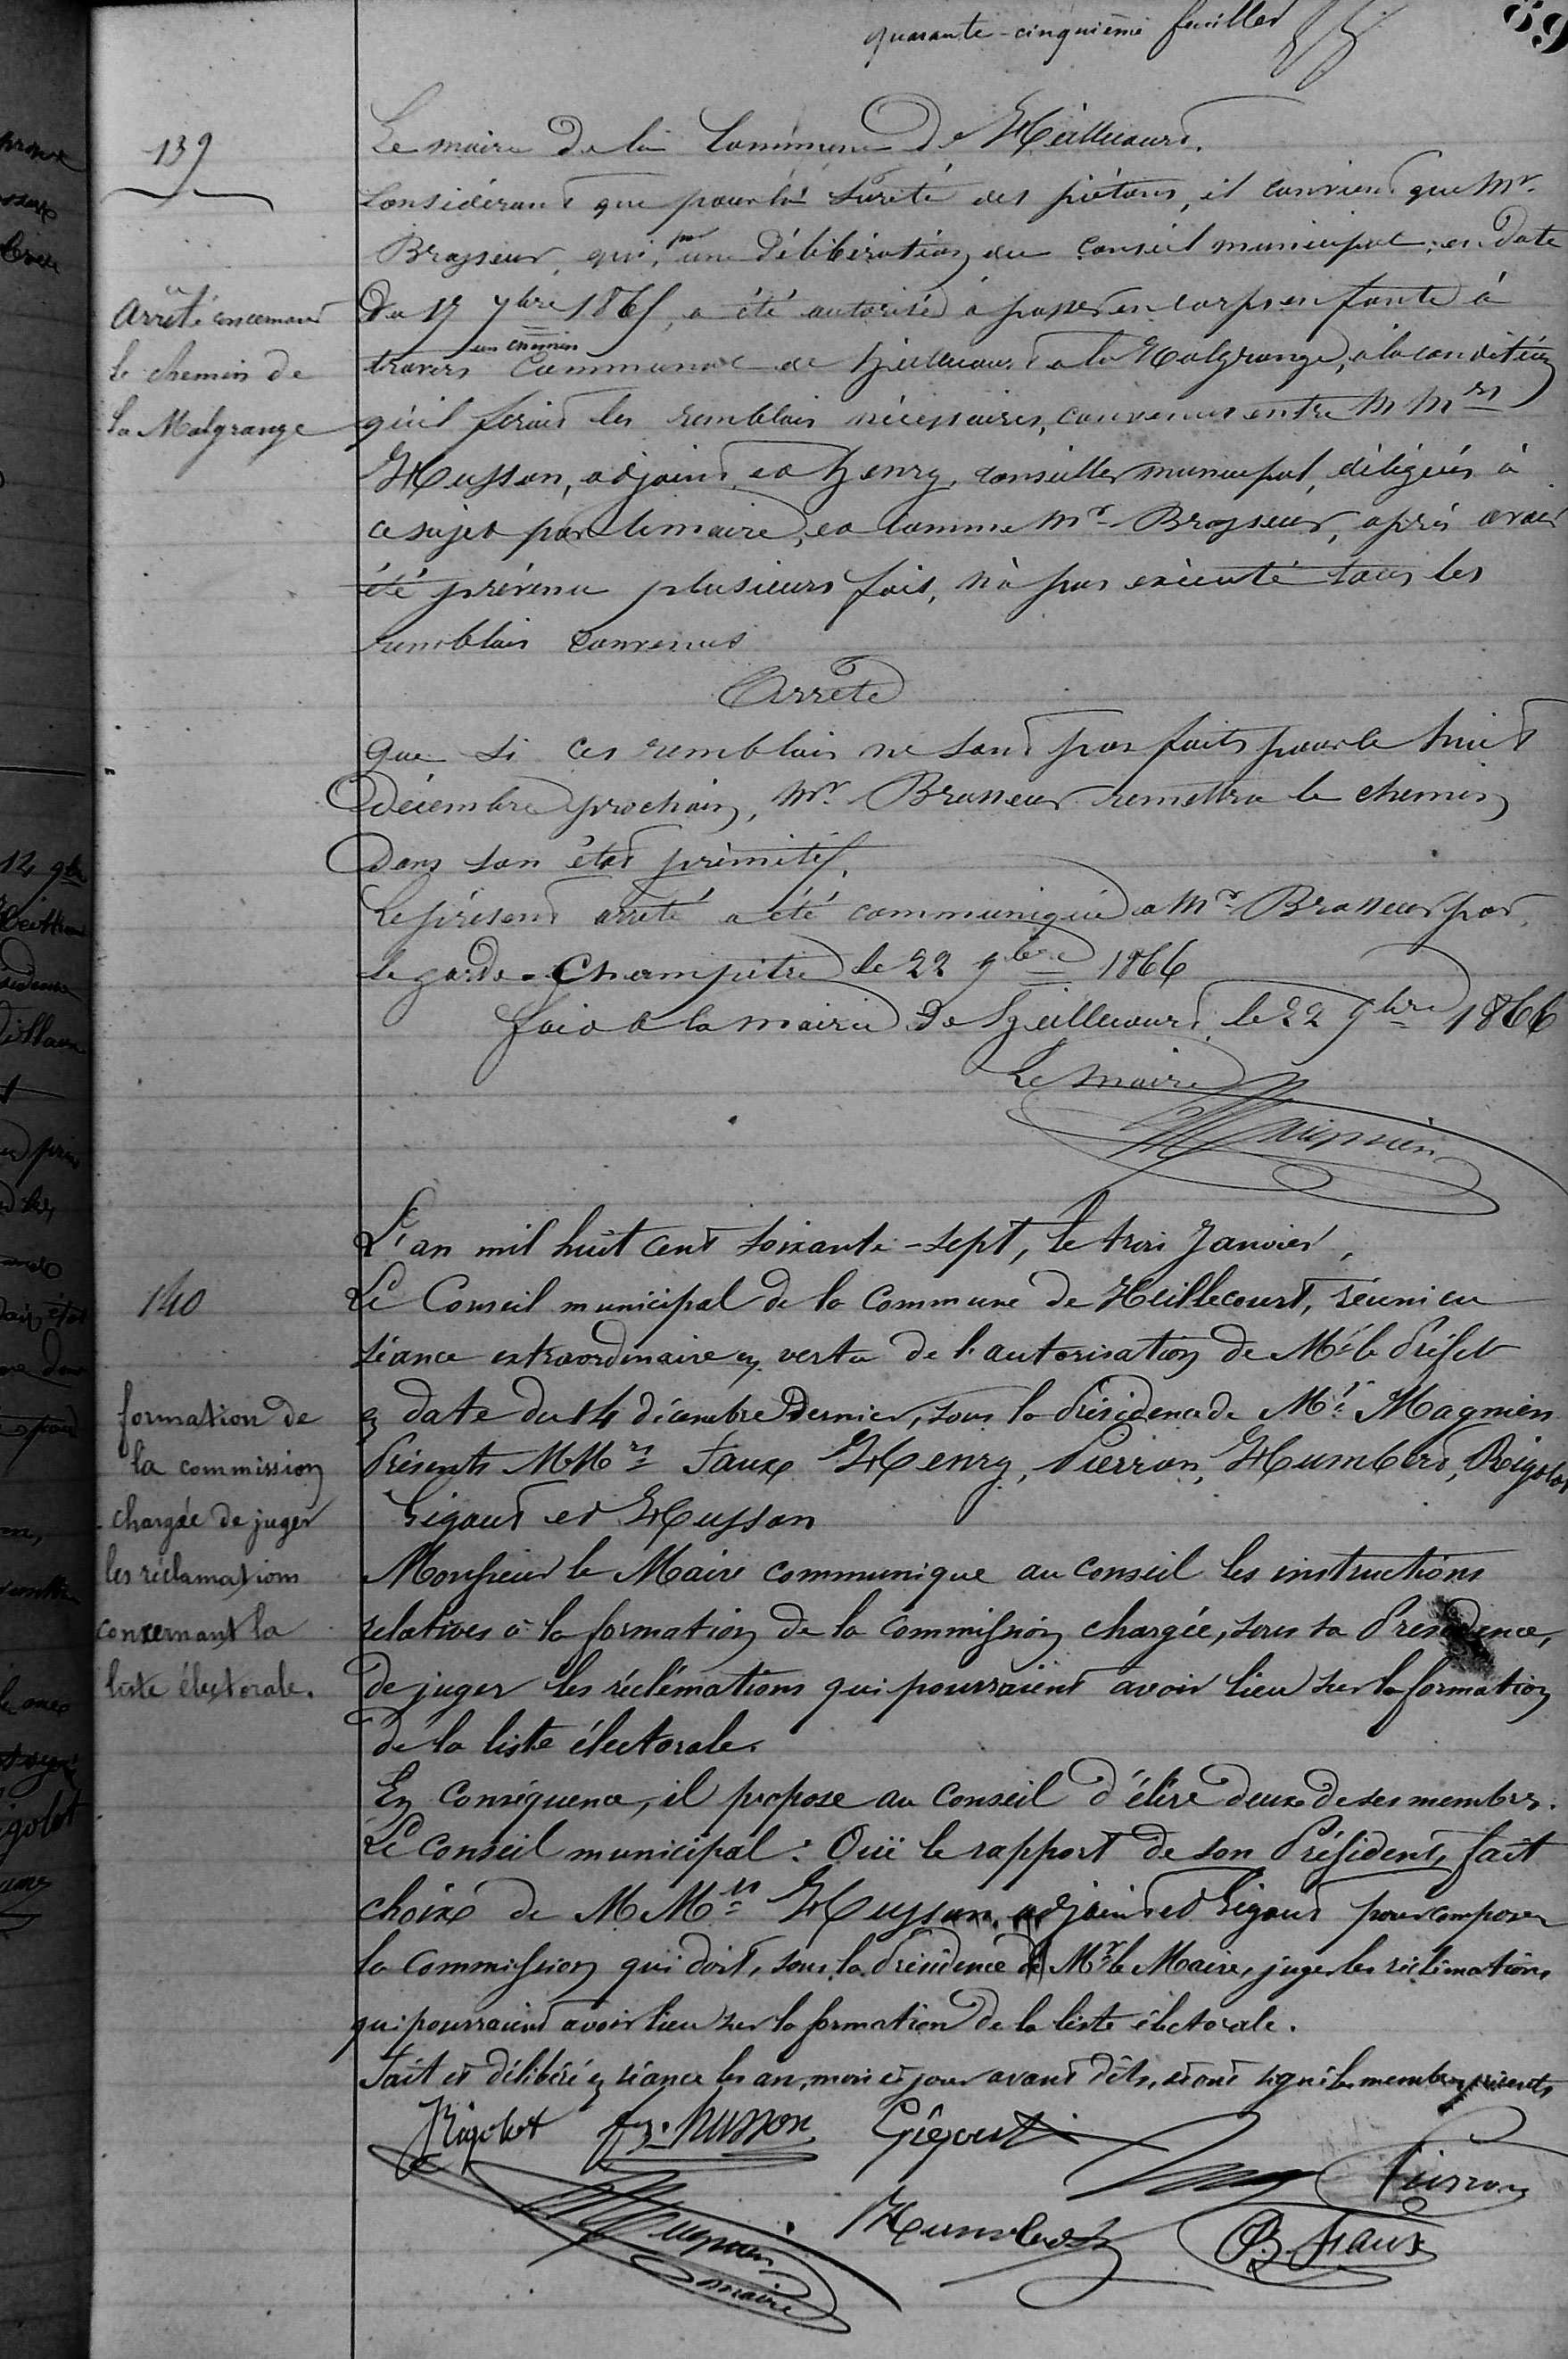 quarante-cinquième feuillet
139
Arrêté concernant
le chemin de
la Malgrange
Le maire de la Commune de Heillecourt.
Considérant que pour la sûreté des piétons, il convient que Mr
Brasseur, qui, par une délibération du Conseil municipal en date
Du 17 7bre 1865, a été autorisé à passer en corps en fonte à
travers un chemin Communal de Heillecourt à la Malgrange, à la condition
qu'il ferait les remblais nécessaires, convenus entre M Mrs
Husson, adjoint et Henry, conseiller municipal, délégués à
ce sujet par le maire, et comme Mr Brasseur, après avoir
été prévenu plusieurs fois, n'a pas exécuté tous les
remblais convenus
Arrête
que si ces remblais ne sont pas faits pour le huit
Décembre prochain, Mr Brasseur remettra le chemin
Dans son état primitif.
Le présent arrêté a été communiqué à Mr Brasseur par
le garde-Champêtre le 22 9bre 1866
fait à la mairie de Heillecourt le 22 9bre 1866
Le maire
Magnien
140
formation de
la commission
chargée de juger
les réclamations
concernant la
liste électorale.
L'an mil huit cent soixante-sept, le trois Janvier,
Le Conseil municipal de la Commune de Heillecourt, réuni en
séance extraordinaire en vertu de l'autorisation de Mr le Préfet
en date du 14 décembre Dernier, sous la Présidence de Mr Magnien
Présents MMrs Faux Henry, Pierron, Humbert, Rigolot
Gigout et Husson
Monsieur le Maire communique au conseil les instructions
relatives à la formation de la commission chargée, sous sa Présidence,
de juger les réclamations qui pourraient avoir lieu sur la formation
de la liste électorale.
En conséquence, il propose au Conseil d'élire deux de ses membres.
Le Conseil municipal : Ouï le rapport de son Président, fait
choix de M Mrs Husson, adjoint et Gigout pour composer
la commission qui doit, sous la Présidence de Mr le Maire, juger les réclamations
qui pourraient avoir lieu sur la formation de la liste électorale.
Fait et délibéré en séance les an, mois et jour avant dits, et ont signé les membres présents
Rigolot fz. husson Gigout
Pierron
Magnien Humbert B. Faux
maire